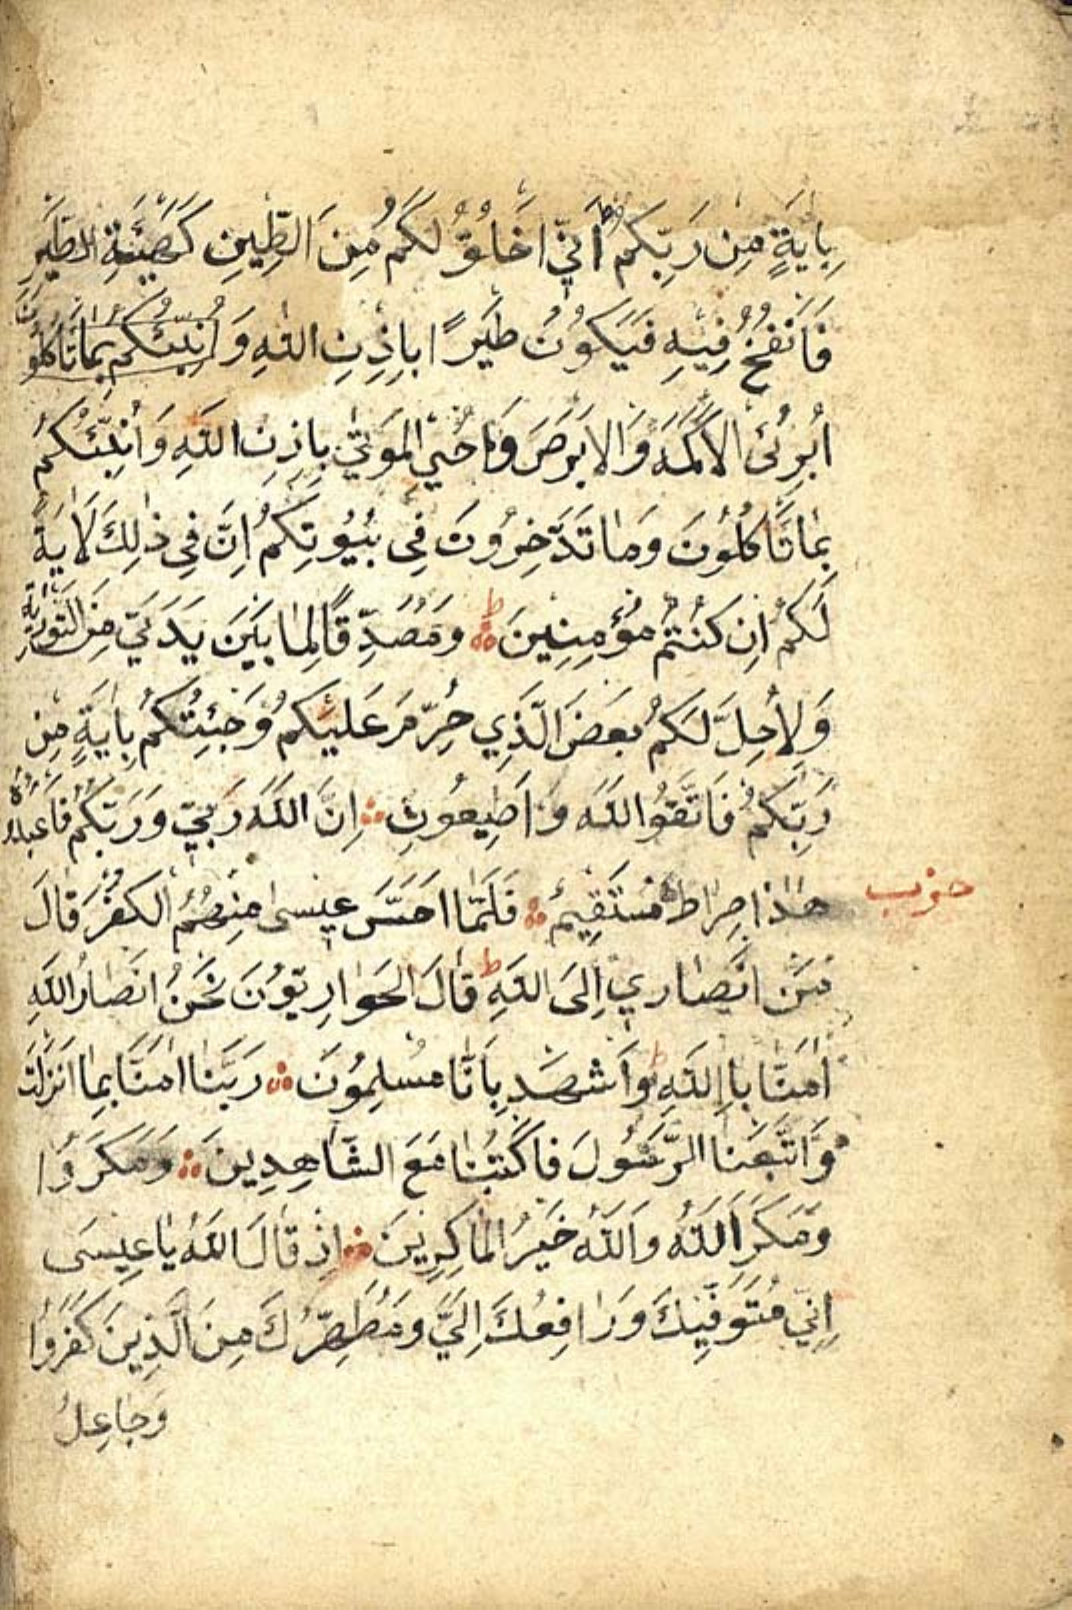 بِاٰيَةٍ مِن رَبِّكُمْ اَنّ۪ي اَخْلُقُ لَكُمْ مِنَ الطّ۪ينِ كَهَيْئَةِ الطَّيْرِ
فَاَنْفُخُ ف۪يهِ فَيَكُونُ طَيْرًا بِاِذْنِ اللّٰهِ وَ اُنَبِّئُكُمْ بِمَا تَاْكُلُونَ
اُبْرِئُ الْاَكْمَهَ وَالْاَبْرَصَ وَاُحْيِ الْمَوْتٰى بِاِذْنِ اللّٰهِ وَاُنَبِّئُكُمْ
بِمَا تَاْكُلُونَ وَمَا تَدَّخِرُونَ ف۪ى بُيُوتِكُمْ اِنَّ ف۪ى ذٰلِكَ لَاٰيَةً
لَكُمْ اِنْ كُنْتُمْ مُؤْمِن۪ينَ ط وَمُصَدِّقًا لِمَا بَيْنَ يَدَيَّ مِنَ التَّوْرٰيةِ
وَلِاُحِلَّ لَكُمْ بَعْضَ الَّذ۪ي حُرِّمَ عَلَيْكُمْ وَجِئْتُكُمْ بِاٰيَةٍ مِنْ
رَبِّكُمْ فَاتَّقُوا اللّٰهَ وَاَط۪يعُونِ اِنَّ اللّٰهَ رَبّ۪ي وَرَبُّكُمْ فَاعْبُدُوهُ
هٰذَا صِرَاطٌ مُسْتَق۪يمٌ فَلَمَّا اَحَسَّ ع۪يسٰى مِنْهُمُ الْكُفْرَ قَالَ
حزب
مَنْ اَنْصَار۪ي اِلَى اللّٰهِ ط قَالَ الْحَوَارِيُّونَ نَحْنُ اَنْصَارُ اللّٰهِ
اٰمَنَّا بِاللّٰهِ ط وَاشْهَدْ بِاَنَّا مُسْلِمُونَ رَبَّنَا اٰمَنَّا بِمَا اَنْزَلْتَ
وَاتَّبَعْنَا الرَّسُولَ فَاكْتُبْنَا مَعَ الشَّاهِد۪ينَ وَمَكَرُوا
وَمَكَرَ اللّٰهُ وَاللّٰهُ خَيْرُ الْمَاكِر۪ينَ اِذْ قَالَ اللّٰهُ يَا ع۪يسٰى
اِنّ۪ي مُتَوَفّ۪يكَ وَرَافِعُكَ اِلَيَّ وَمُطَهِّرُكَ مِنَ الَّذ۪ينَ كَفَرُوا
وَجَاعِلُ